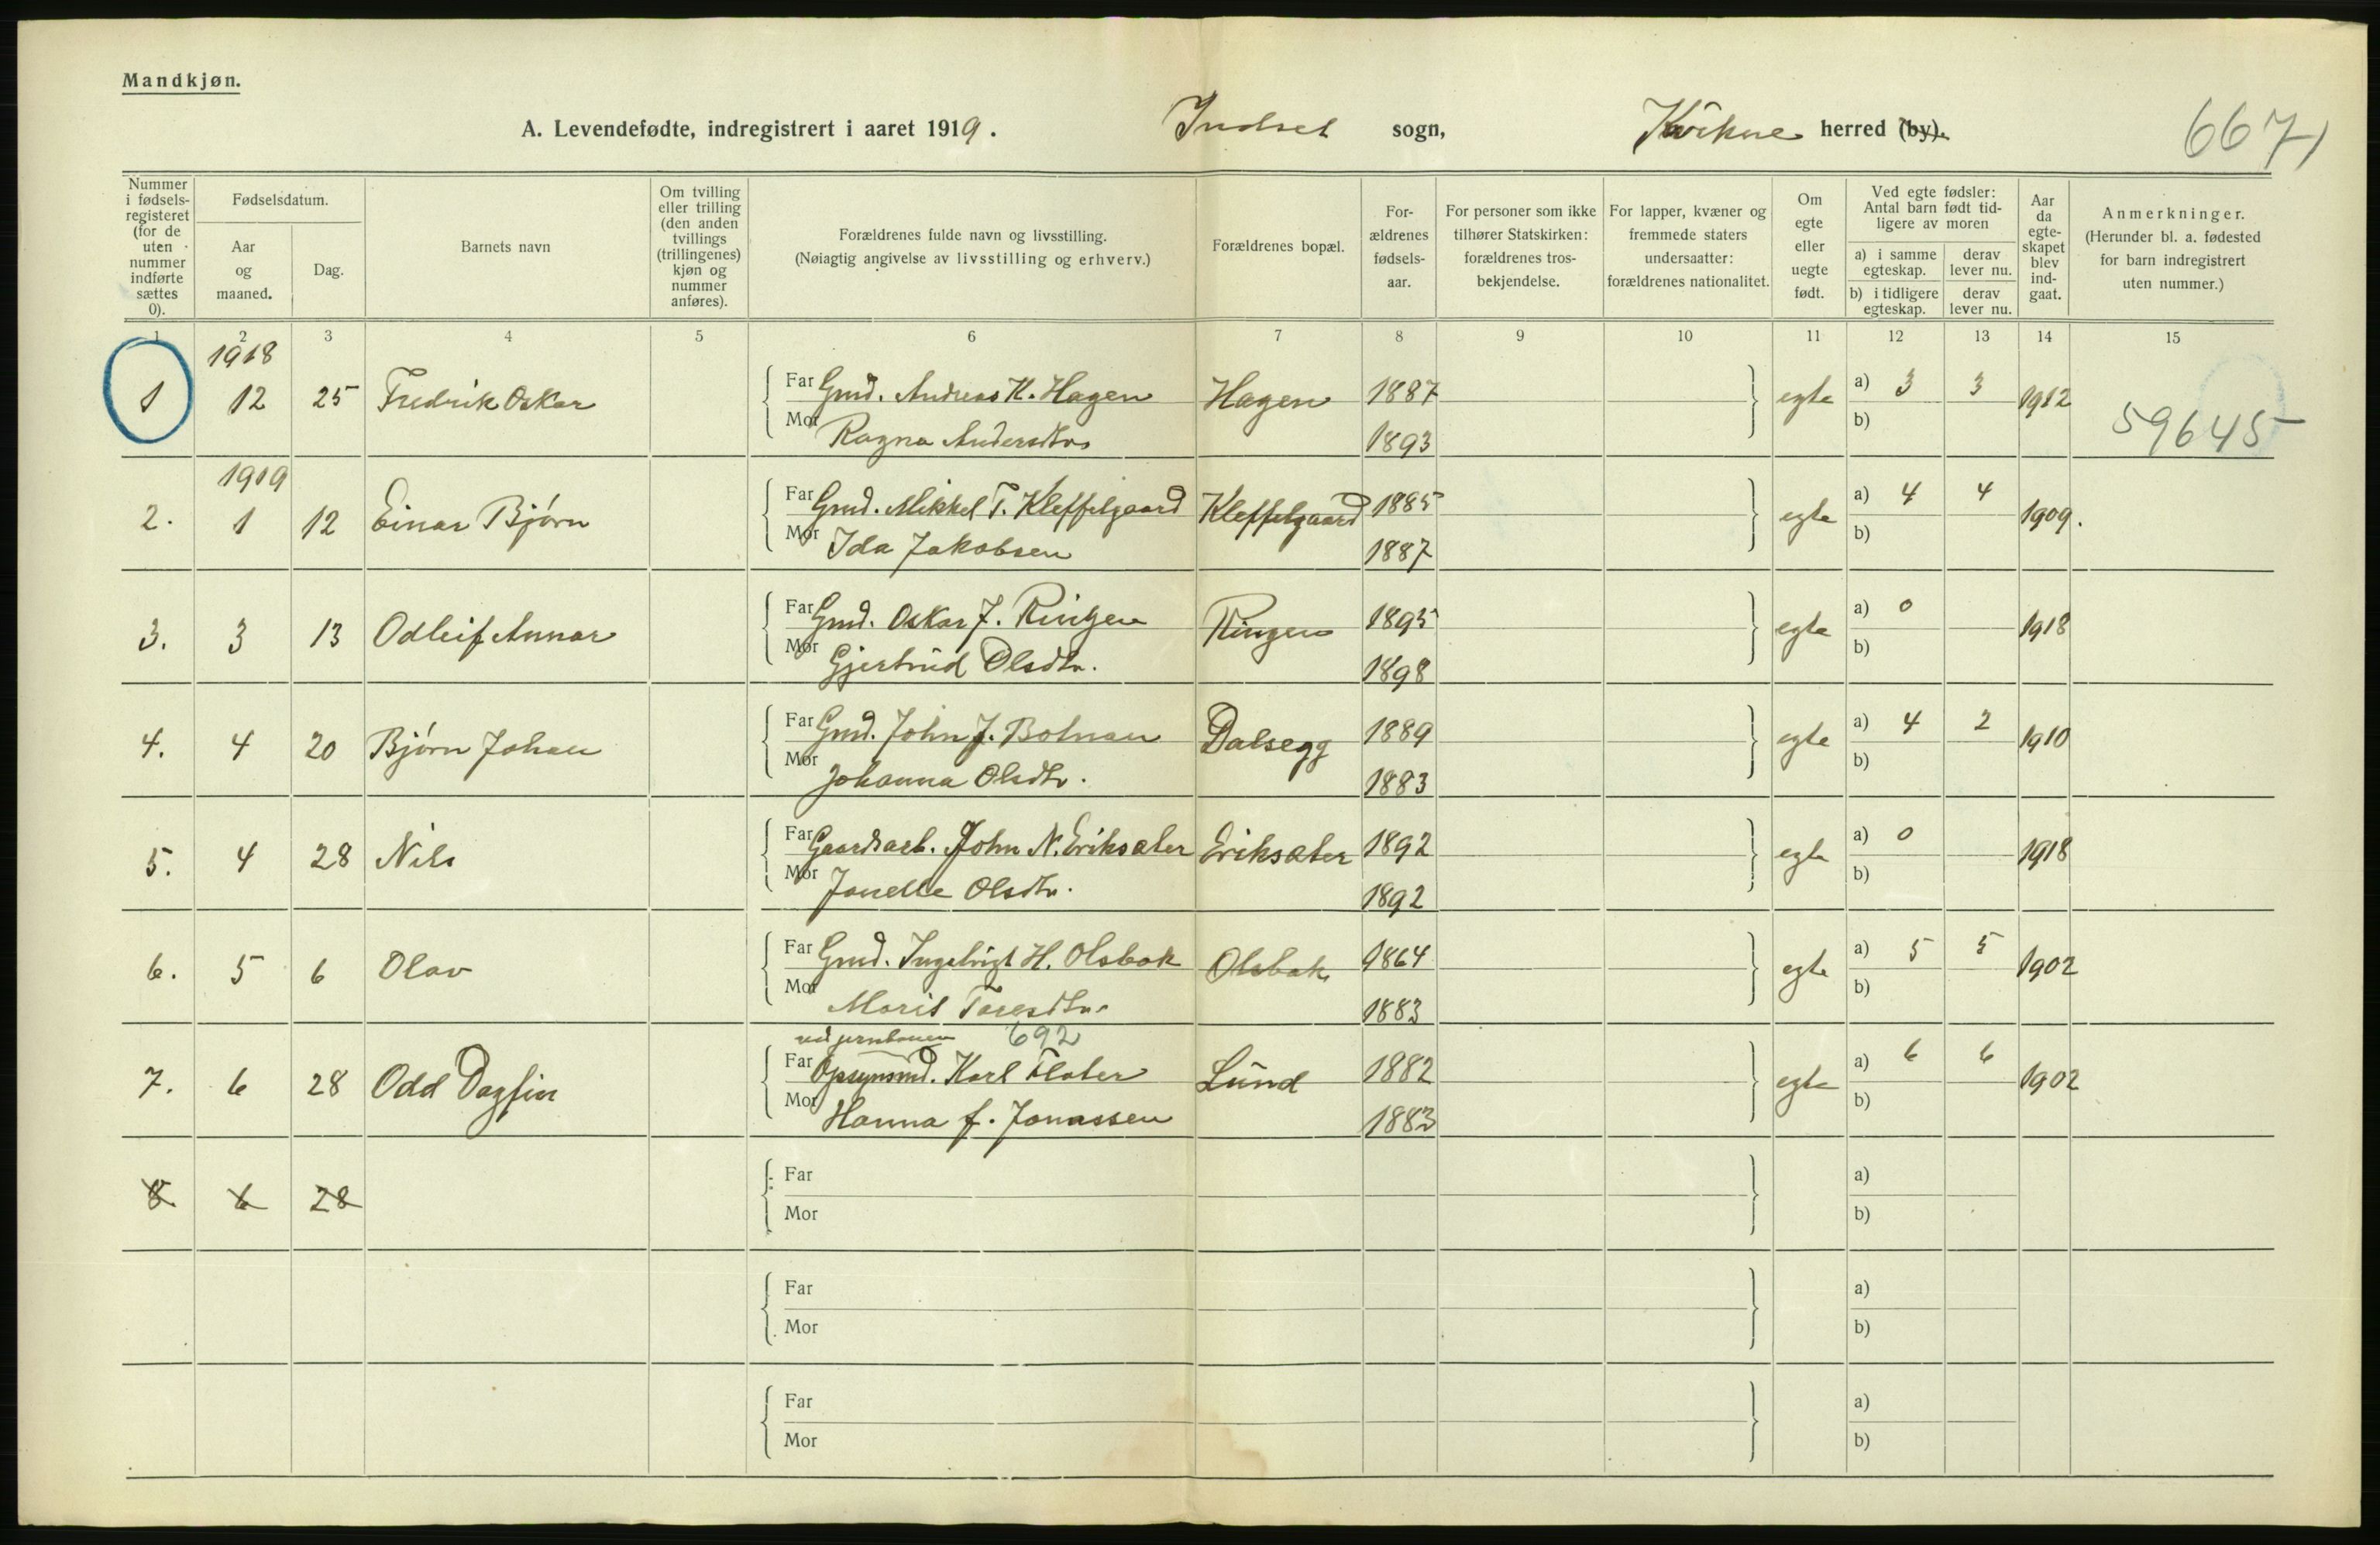 Mandkjøn.
A. Levendefødte, indregistrert i aaret 1919. Indset sogn, Kvikne herred (by).
667
Nummer i fødselsregisteret (for de uten nummer indførte sættes 0).
Fødselsdatum.
Aar og maaned.
Dag.
Barnets navn
Om tvilling eller trilling (den anden tvillings (trillingenes) kjøn og nummer anføres).
Forældrenes fulde navn og livsstilling.
(Nøiagtig angivelse av livsstilling og erhverv.)
Forældrenes bopæl.
Forældrenes fødselsaar.
For personer som ikke tilhører Statskirken: forældrenes trosbekjendelse.
For lapper, kvæner og fremmede staters undersaatter: forældrenes nationalitet.
Om egte eller uegte født.
Ved egte fødsler: Antal barn født tidligere av moren
a) i samme egteskap. derav lever nu.
b) i tidligere egteskap. derav lever nu.
Aar da egteskapet blev indgaat.
Anmerkninger.
(Herunder bl. a. fødested for barn indregistrert uten nummer.)
1 2 3 4 5 6 7 8 9 10 11 12 13 14 15
1918
1 12 25 Fredrik Oskar Far Gmd. Andreas K. Hagen Hagen 1887 egte a) 3 3 1912
Mor Ragna Andersdtr 1893 b) 59645
1919
2. 1 12 Einar Bjørn Far Gmd. Mikkel T. Kleffelgaard Kleffelgaard 1885 egte a) 4 4 1909.
Mor Ida Jakobsen 1887 b)
3. 3 13 Odleif Annar Far Gmd. Oskar J. Ringen Ringen 1895 egte a) 0 1918
Mor Gjertrud Olsdtr. 1898 b)
4. 4 20 Bjørn Johan Far Gmd. John J. Bolman Dalsegg 1889 egte a) 4 2 1910
Mor Johanna Olsdtr. 1883 b)
5. 4 28 Nils Far Gaardsarb. John N. Eriksæter Eriksæter 1892 egte a) 0 1918
Mor Jonette Olsdtr. 1892 b)
6. 5 6 Olav Far Gmd. Ingebrigt H. Olsbak Olsbak 1864 egte a) 5 5 1902
Mor Marit Toresdtr. 1883 b)
ved jernbanen 692
7. 6 28 Odd Dagfin Far Opsynsmd. Karl Flaten Lund 1882 egte a) 6 6 1902
Mor Hanna f. Jonassen 1883 b)
8 6 28 Far a)
Mor b)
Far a)
Mor b)
Far a)
Mor b)